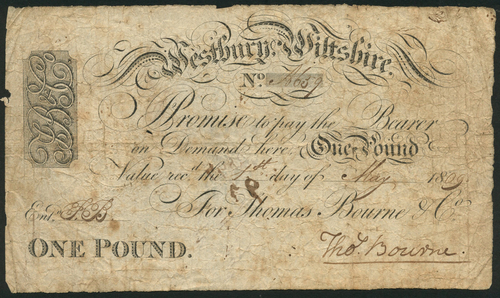 Westbury Wiltshire.
No.
I Promise to pay the Bearer
on Demand here, One Pound
Value recd. the 1st day of May 1809
For Thomas Bourne & Co.
Entd. P.B.
ONE POUND.
Thos. Bourne.